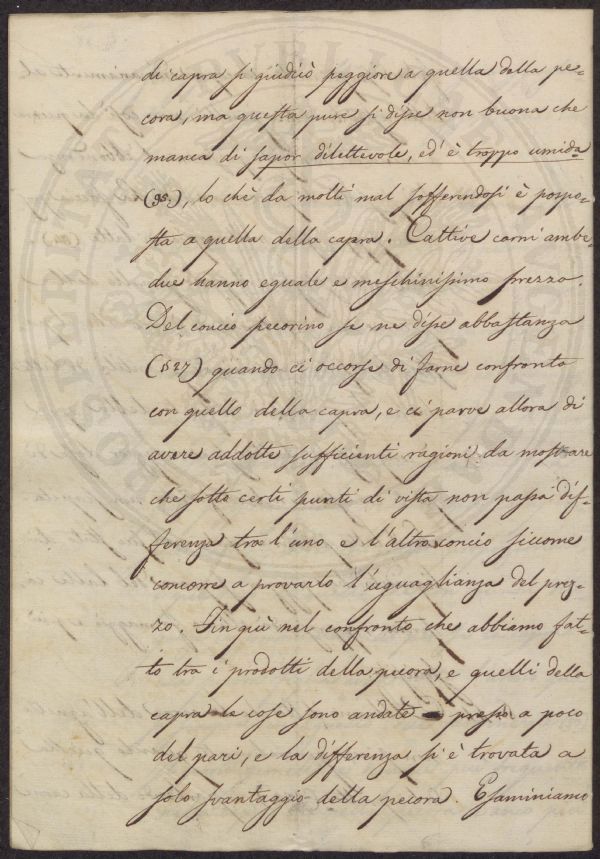 di capra si giudicò peggiore a quella della pe-
cora, ma questa pure si disse non buona che
manca di sapor dilettevole, ed è troppo umida
(95.), lo chè da molti mal sofferendosi è pospo-
sta a quella della capra. Cattive carni ambe-
due hanno eguale e meschinissimo prezzo.
Del concio pecorino se ne disse abbastanza
quando ci occorse di farne confronto
con quello della capra, e ci parve allora di
avere addotte sufficienti ragioni da mostrare
che sotto certi punti di vista non passa dif-
ferenza tra l'uno e l'altro concio siccome
concorre a provarlo l'uguaglianza del prez-
zo. Fin quì nel confronto che abbiamo fat-
to tra i prodotti della pecora, e quelli della
capra le cose sono andate presso a poco
del pari, e la differenza si è trovata a
solo svantaggio della pecora Esaminiamo